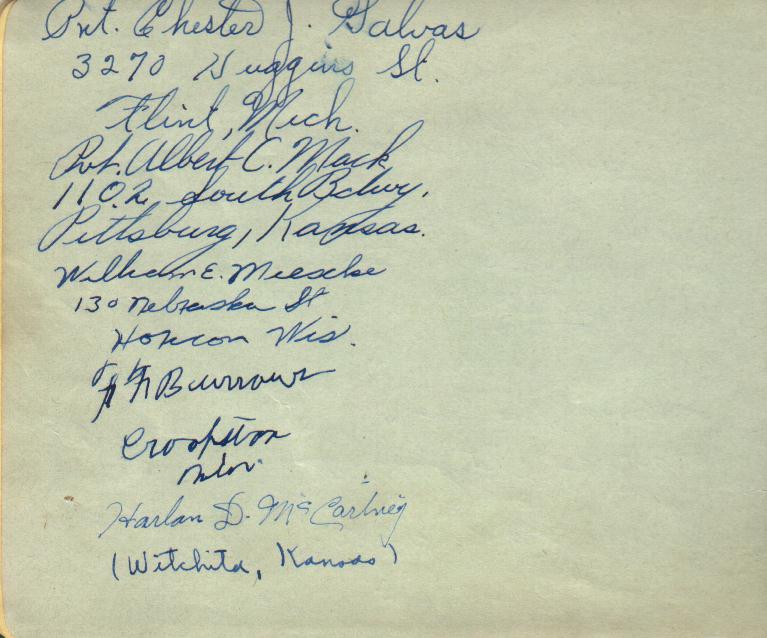 Pvt. Chester J. Galvas
3270 Huggins St.
Flint, Mich.
Pvt. Albert C. Mack
1102 South Bdwy.
Pittsburg, Kansas.
William E. Mieschke
130 Nebraska St
Horicon Wis.
Burrows
Crookston
Minn.
Harlan D. McCartney
(Witchita, Kansas)